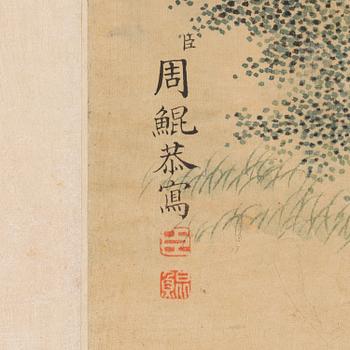 臣周鯤恭寫